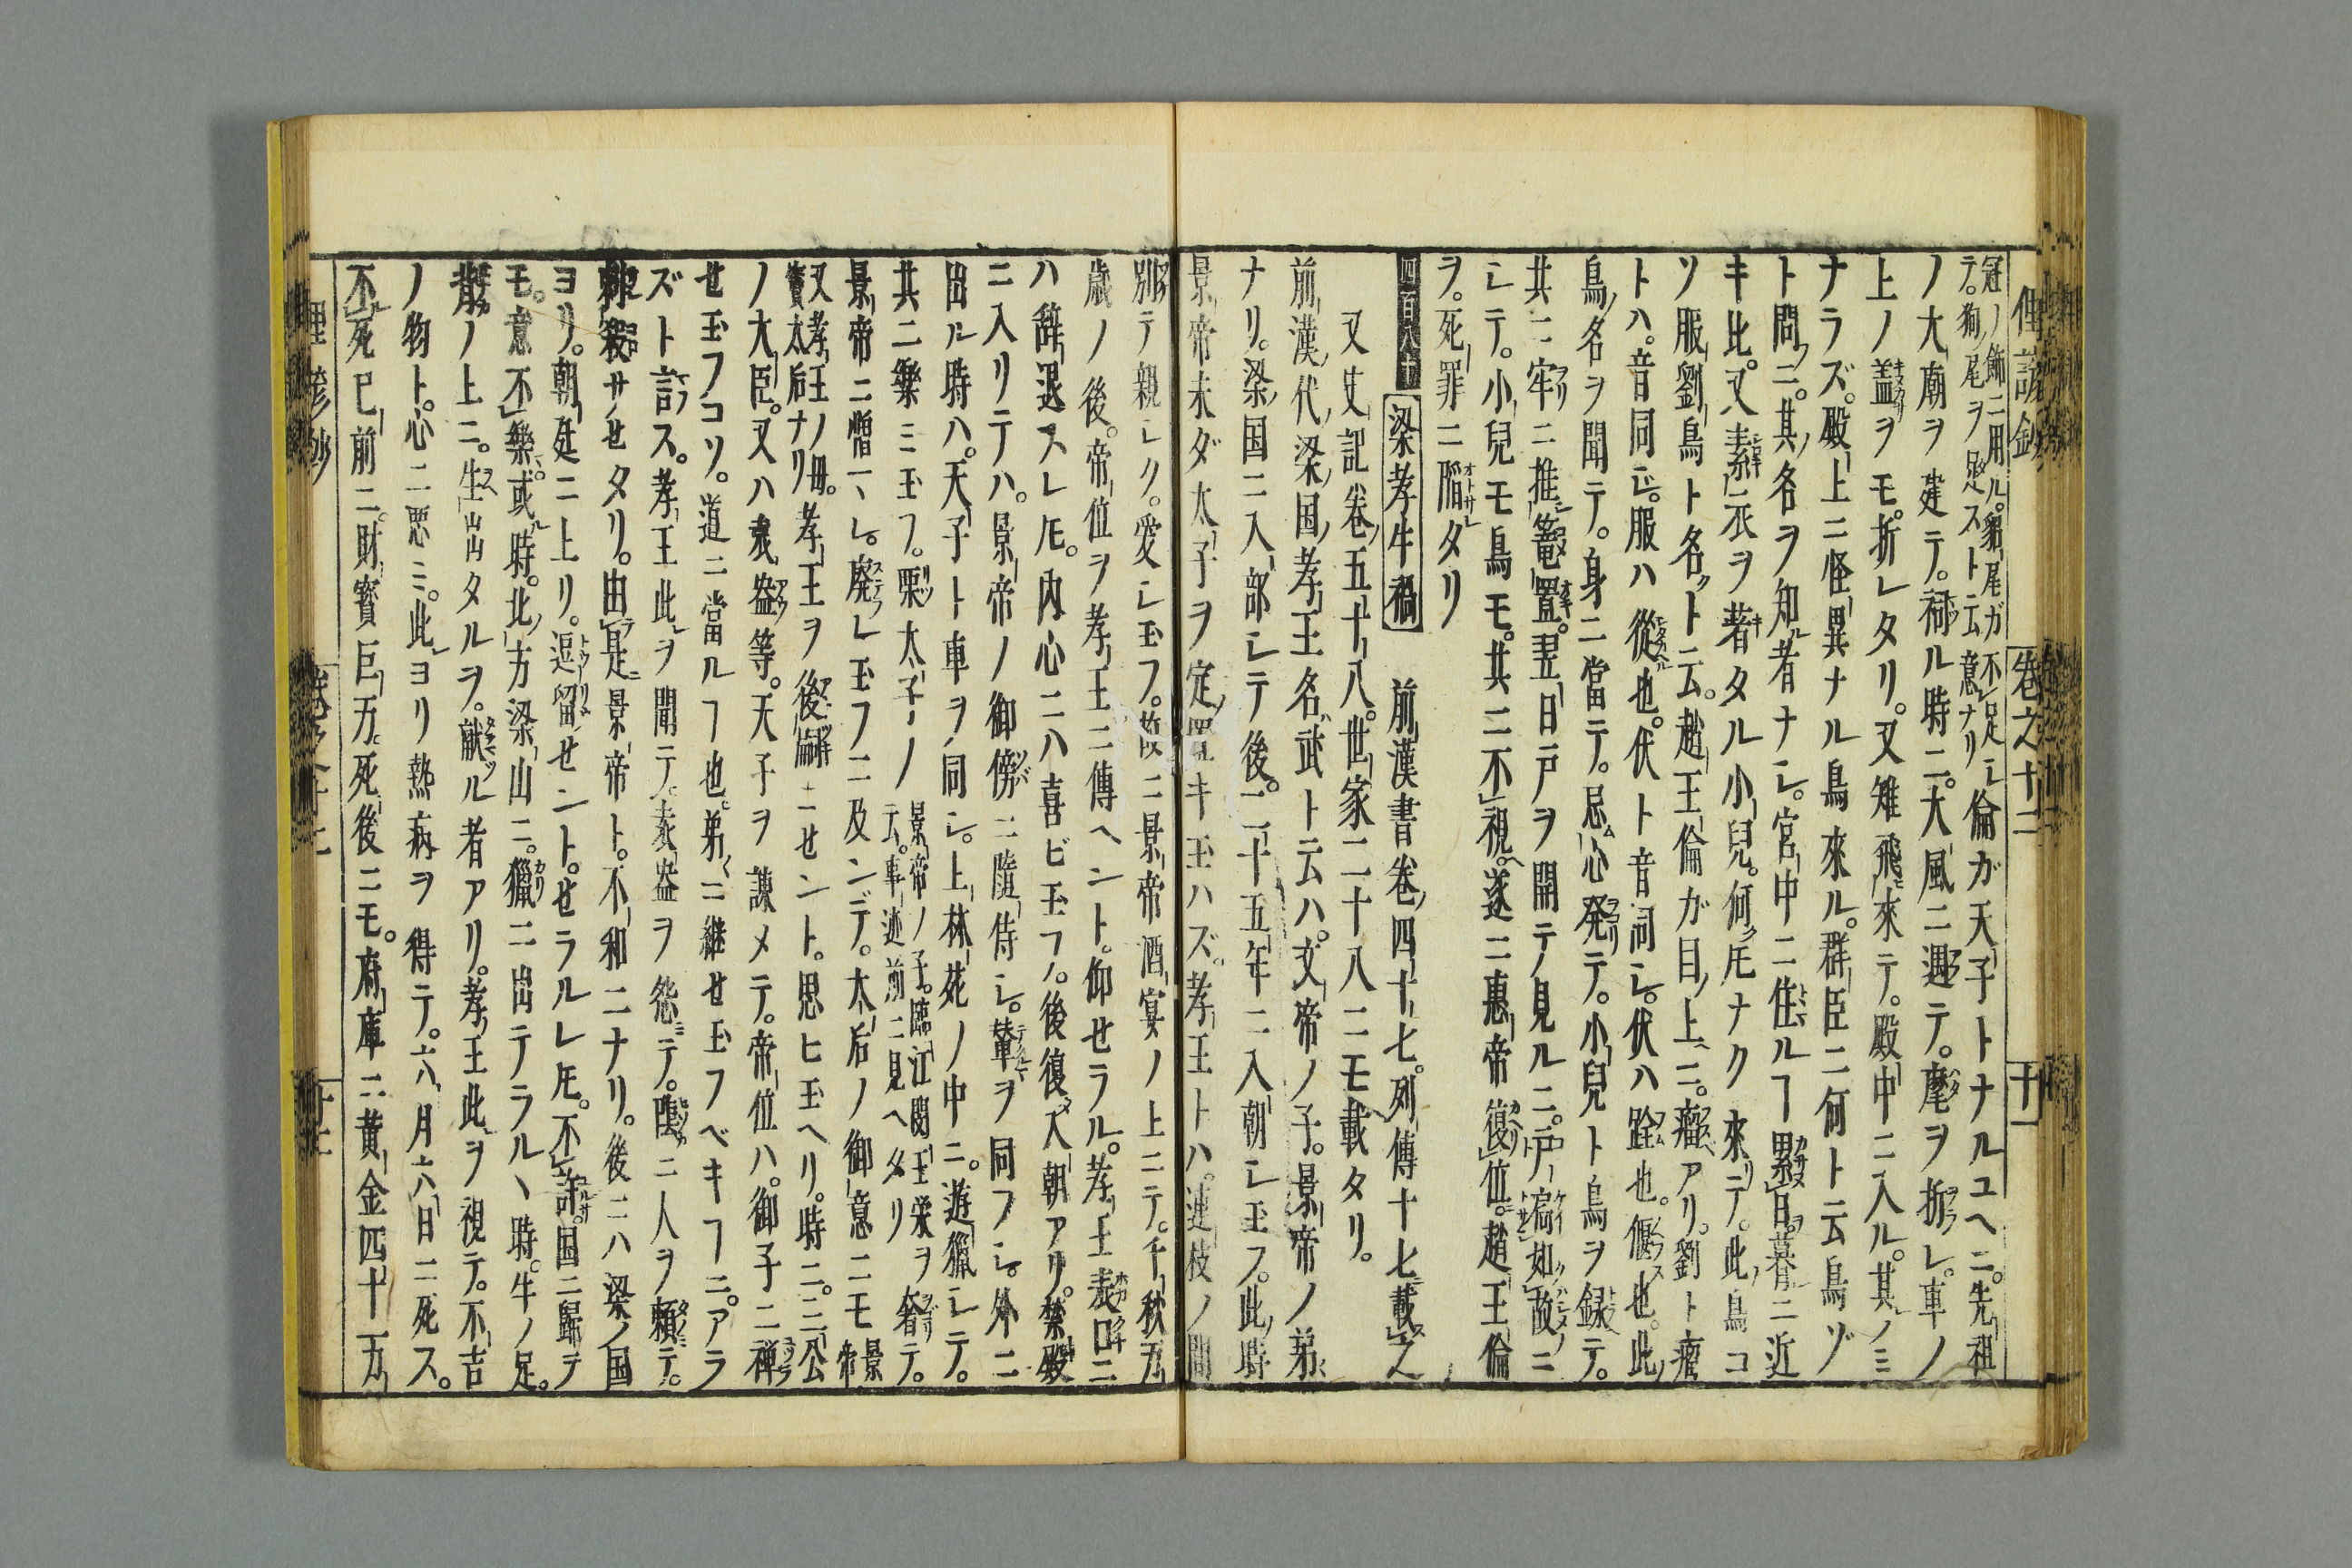 俚諺鈔 卷之十二 十一
冠ノ飾ニ用ル。貂尾ガ不足シ
テ。狗尾ヲ足スト云意ナリ
倫ガ天子トナルユヘニ。先祖
ノ大廟ヲ建テ。祠ル時ニ。大風ニ遇テ。麾ヲ折レ。車ノ
上ノ蓋ヲモ。折レタリ。又雉飛來テ。殿中ニ入ル。其ノミ
ナラズ。殿上ニ怪異ナル鳥來ル。群臣ニ何ト云鳥ゾ
ト問ニ。其名ヲ知者ナシ。宮中ニ住ルヿ累日。暮ニ近
キ比。又素衣ヲ著タル小兒。何𪜈ナク來テ。此鳥コ
ソ服劉鳥ト名クト云。趙王倫ガ目上ニ。瘤アリ。劉ト瘤
トハ。音同シ。服ハ從也。伏ト音詞シ。伏ハ跧也。偃也。此
鳥ノ名ヲ聞テ。身ニ當テ。忌心発テ。小兒ト鳥ヲ録テ。
共ニ牢ニ推籠置。翌日戸ヲ開テ見ルニ。戸扃如故ニ
シテ。小兒モ鳥モ。共ニ不視。遂ニ惠帝復位。趙王倫
ヲ。死罪ニ陷タリ
四百八十 梁孝牛禍 前漢書卷四十七。列傳十七載之
又史記卷五十八。世家二十八ニモ載タリ。
前漢代梁国孝王名武ト云ハ。文帝ノ子。景帝ノ弟
ナリ。梁国ニ入部シテ後。二十五年ニ入朝シ玉フ。此時
景帝未ダ太子ヲ定置キ玉ハズ。孝王トハ。連枝ノ間
別テ親シク。愛シ玉フ。故ニ景帝酒宴ノ上ニテ。千秋万
歳ノ後。帝位ヲ孝王ニ傳ヘント。仰セラル。孝王表口ニ
ハ辞退スレ𪜈。内心ニハ喜ビ玉フ。後復入朝アリ。禁殿
ニ入リテハ。景帝ノ御傍ニ隨侍シ。輦ヲ同フシ。外ニ
出ル時ハ。天子ト車ヲ同シ。上林苑ノ中ニ。遊獵シテ。
共ニ樂ミ玉フ。栗太子ノ
景帝ノ子。臨江閔王栄ヲ
云。事迹前ニ見ヘタリ
奢テ。
景帝ニ憎マレ。廃レ玉フニ及ンデ。太后ノ御意ニモ
景帝
又孝王ノ母。
竇太后ナリ
孝王ヲ後嗣ニセント。思ヒ玉ヘリ。時ニ。三公
ノ大臣。又ハ袁盎等。天子ヲ諫メテ。帝位ハ。御子ニ禅
セ玉フコソ。道ニ當ルヿ也。弟ニ継セ玉フベキヿニ。アラ
ズト言ス。孝王此ヲ聞テ。袁盎ヲ怨テ。陰ニ人ヲ頼テ。
刺殺サセタリ。由是景帝ト。不和ニナリ。後ニハ梁ノ国
ヨリ。朝廷ニ上リ。逗留セント。セラルレ𪜈。不許。国ニ歸テ
モ。意不樂。或時。北方梁山ニ。獵ニ出テラルヽ時。牛ノ足。
背ノ上ニ。生出タルヲ。献ル者アリ。孝王此ヲ視テ。不吉
ノ物ト。心ニ悪ミ。此ヨリ熱病ヲ得テ。六月六日ニ死ス。
不死已前ニ。財寳巨万。死後ニモ。府庫ニ黄金四十万